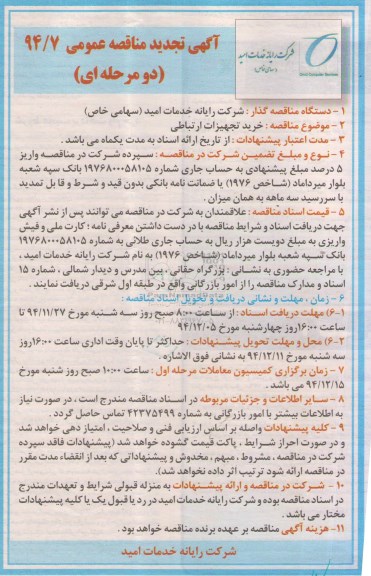 شرکت رایانه خدمات امید
(سهامی خاص)
آگهی تجدید مناقصه عمومی ۹۴/۷
(دو مرحله ای)
۱- دستگاه مناقصه گذار : شرکت رایانه خدمات امید (سهامی خاص)
۲- موضوع مناقصه : خرید تجهیزات ارتباطی
۳- مدت اعتبار پیشنهادات : از تاریخ ارائه اسناد به مدت یکماه می باشد .
۴- نوع و مبلغ تضمین شرکت در مناقصه : سپرده شرکت در مناقصه واریز
۵ درصد مبلغ پیشنهادی به حساب جاری شماره ۱۹۷۶۸۰۰۰۵۸۱۰۵ بانک سپه شعبه
بلوار میرداماد (شاخص ۱۹۷۶) یا ضمانت نامه بانکی بدون قید و شرط و قابل تمدید
با سررسید سه ماهه به همان میزان .
۵- قیمت اسناد مناقصه : علاقمندان به شرکت در مناقصه می توانند پس از نشر آگهی
جهت دریافت اسناد و شرایط مناقصه با در دست داشتن معرفی نامه ؛ کارت ملی و فیش
واریزی به مبلغ دویست هزار ریال به حساب جاری طلائی به شماره ۱۹۷۶۸۰۰۰۵۸۱۰۵
بانک سپه شعبه بلوار میرداماد (شاخص ۱۹۷۶) به نام شرکت رایانه خدمات امید ،
با مراجعه حضوری به نشانی : بزرگراه حقانی ، بین مدرس و دیدار شمالی ، شماره ۱۵
اسناد و مدارک مناقصه را از امور بازرگانی واقع در طبقه اول شرقی دریافت نمایند .
۶- زمان ، مهلت و نشانی دریافت و تحویل اسناد مناقصه :
۶-۱) مهلت دریافت اسناد : از ساعت ۸:۰۰ صبح روز سه شنبه مورخ ۹۴/۱۱/۲۷ تا
ساعت ۱۶:۰۰روز چهارشنبه مورخ ۹۴/۱۲/۰۵
۶-۲) محل و مهلت تحویل پیشنهادات : حداکثر تا پایان وقت اداری ساعت ۱۶:۰۰روز
سه شنبه مورخ ۹۴/۱۲/۱۱ به نشانی فوق الاشاره .
۷- زمان برگزاری کمیسیون معاملات مرحله اول : ساعت ۱۰:۰۰ صبح روز شنبه مورخ
۹۴/۱۲/۱۵ می باشد .
۸- سایر اطلاعات و جزئیات مربوطه در اسناد مناقصه مندرج است ، در صورت نیاز
به اطلاعات بیشتر با امور بازرگانی به شماره ۴۲۳۷۵۴۹۹ تماس حاصل گردد .
۹- کلیه پیشنهادات واصله بر اساس ارزیابی فنی و صلاحیت ، امتیاز دهی خواهد شد
و در صورت احراز شرایط ، پاکت قیمت گشوده خواهد شد (پیشنهادات فاقد سپرده
شرکت در مناقصه ، مشروط ، مبهم ، مخدوش و پیشنهاداتی که بعد از انقضاء مدت مقرر
در مناقصه ارائه شود ترتیب اثر داده نخواهد شد).
۱۰- شرکت در مناقصه و ارائه پیشنهادات به منزله قبولی شرایط و تعهدات مندرج
در اسناد مناقصه بوده و شرکت رایانه خدمات امید در رد یا قبول یک یا کلیه پیشنهادات
مختار می باشد .
۱۱- هزینه آگهی مناقصه بر عهده برنده مناقصه خواهد بود .
شرکت رایانه خدمات امید